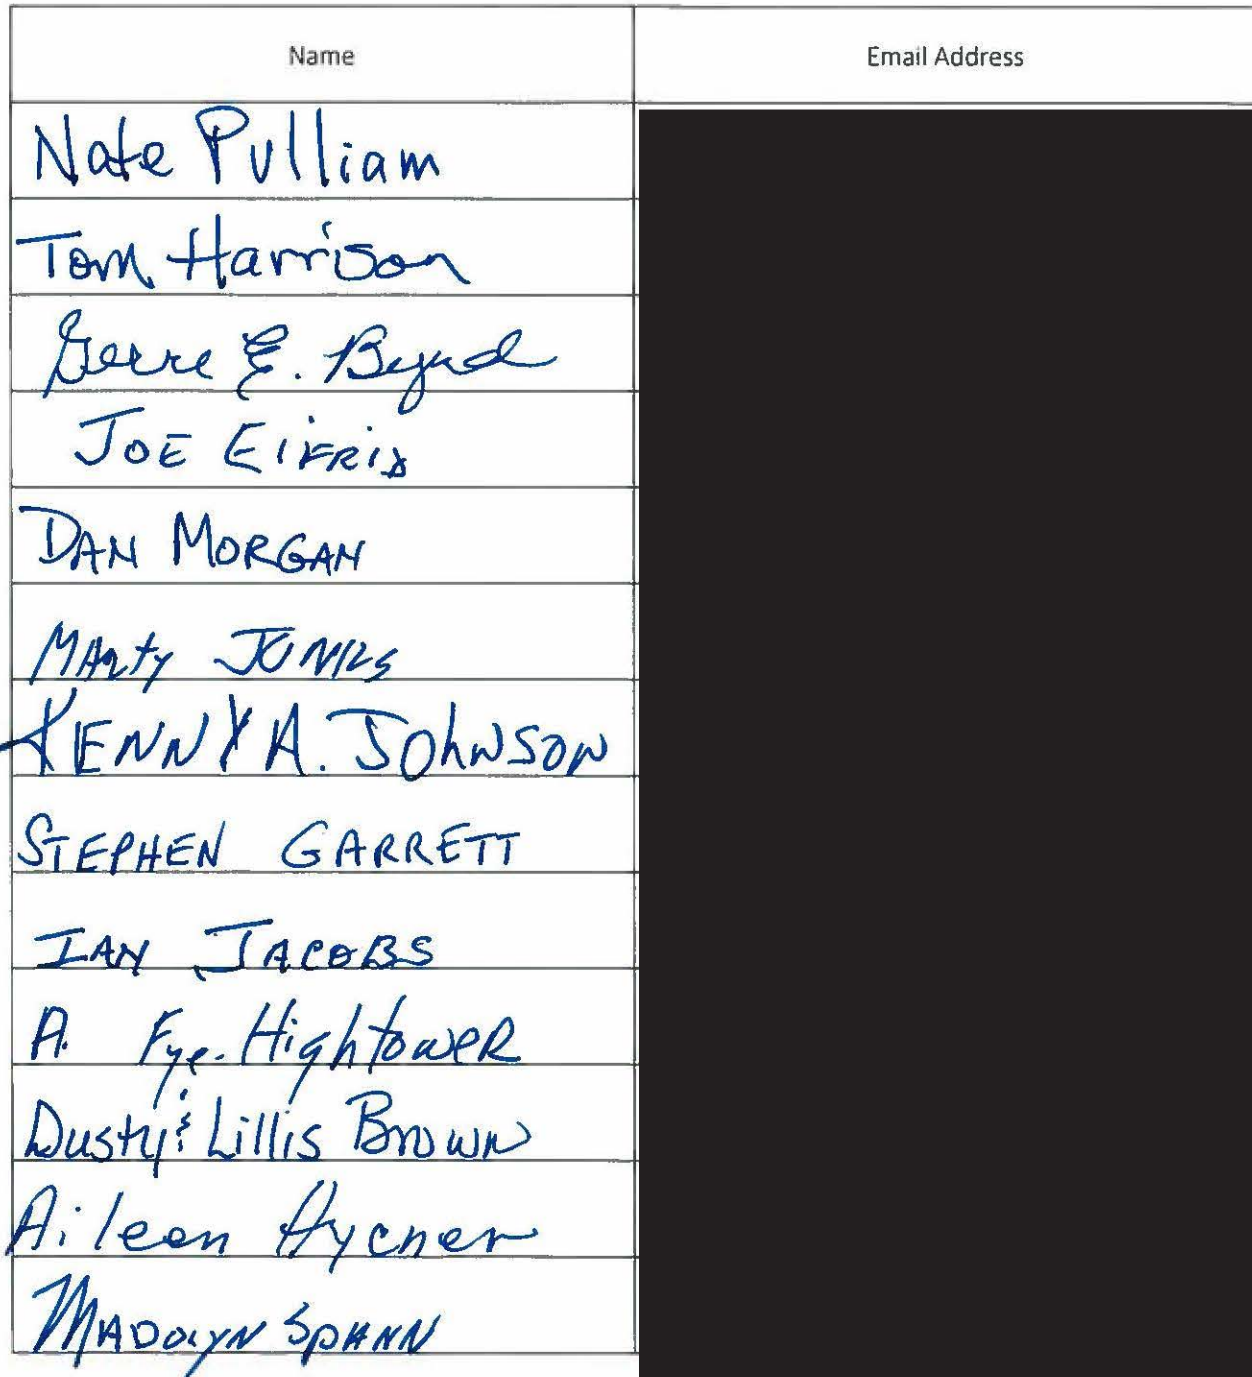 Name Email Address
Nate Pulliam
Tom Harrison
Gerre E. Byrd
JOE EIFRID
DAN MORGAN
MARTY
KENNY A. JOHNSON
STEPHEN GARRETT
IAN JACOBS
A. Fye-Hightower
Dusty & Lillis Brown
Aileen Hycner
MADOLYN SPANN